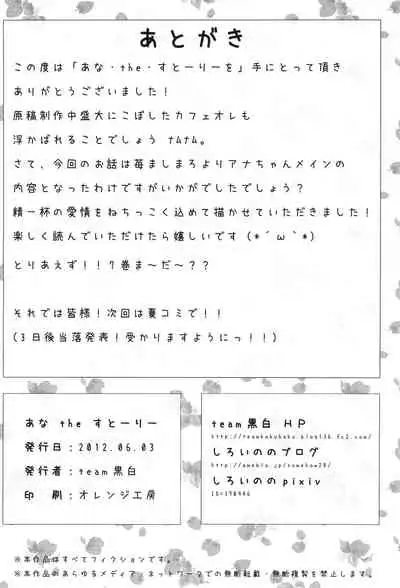 あとがき
この度は「あな・the・すとーりーを」手にとって頂き
ありがとうございました！
原稿制作中盛大にこぼしたカフェオレも
浮かばれることでしょう ﾅﾑﾅﾑ。
さて、今回のお話は苺ましまろよりアナちゃんメインの
内容となったわけですがいかがでしたでしょう？
精一杯の愛情をねちっこく込めて描かせていただきました！
楽しく読んでいただけたら嬉しいです (*´ω`*)
とりあえず！！7巻ま～だ～？？
それでは皆様！次回は夏コミで！！
(3日後当落発表！受かりますようにっ！！)
あな the すとーりー
発行日：2012.06.03
発行者：team黒白
印　刷：オレンジ工房
team黒白 HP
しろいののブログ
しろいののpixiv
※本作品はすべてフィクションです。
※本作品のあらゆるメディア、ネットワークでの無断転載・無断複製を禁止します。